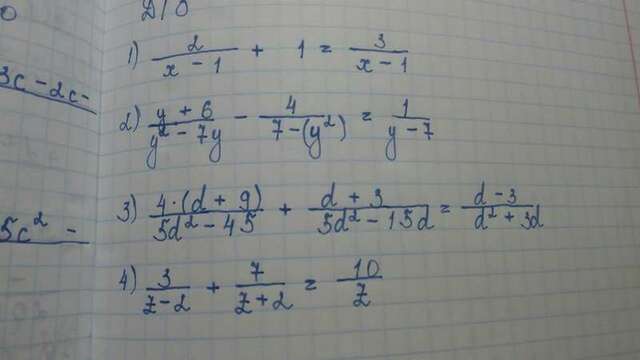 Д/О
1) 2/(x - 1) + 1 = 3/(x - 1)
2) (y + 6)/(y² - 7y) - 4/(7-(y²)) = 1/(y - 7)
3) (4·(d + 9))/(5d² - 45) + (d + 3)/(5d² - 15d) = (d - 3)/(d² + 3d)
4) 3/(z - 2) + 7/(z + 2) = 10/z
3c - 2c -
5c² -